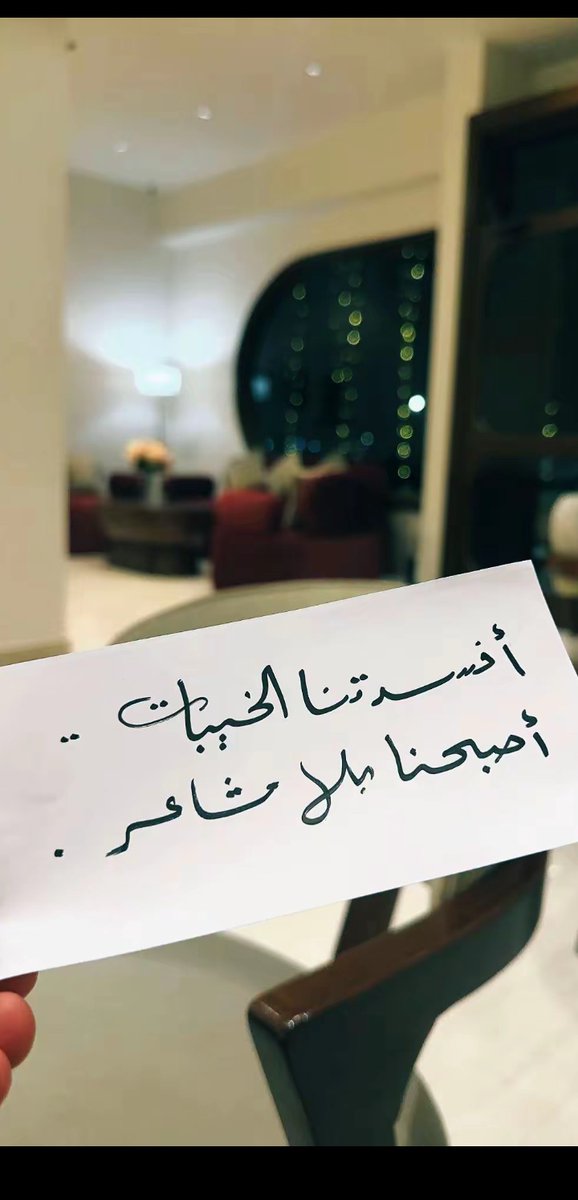 أفسدتنا الخيبات ..
أصبحنا بلا مشاعر .